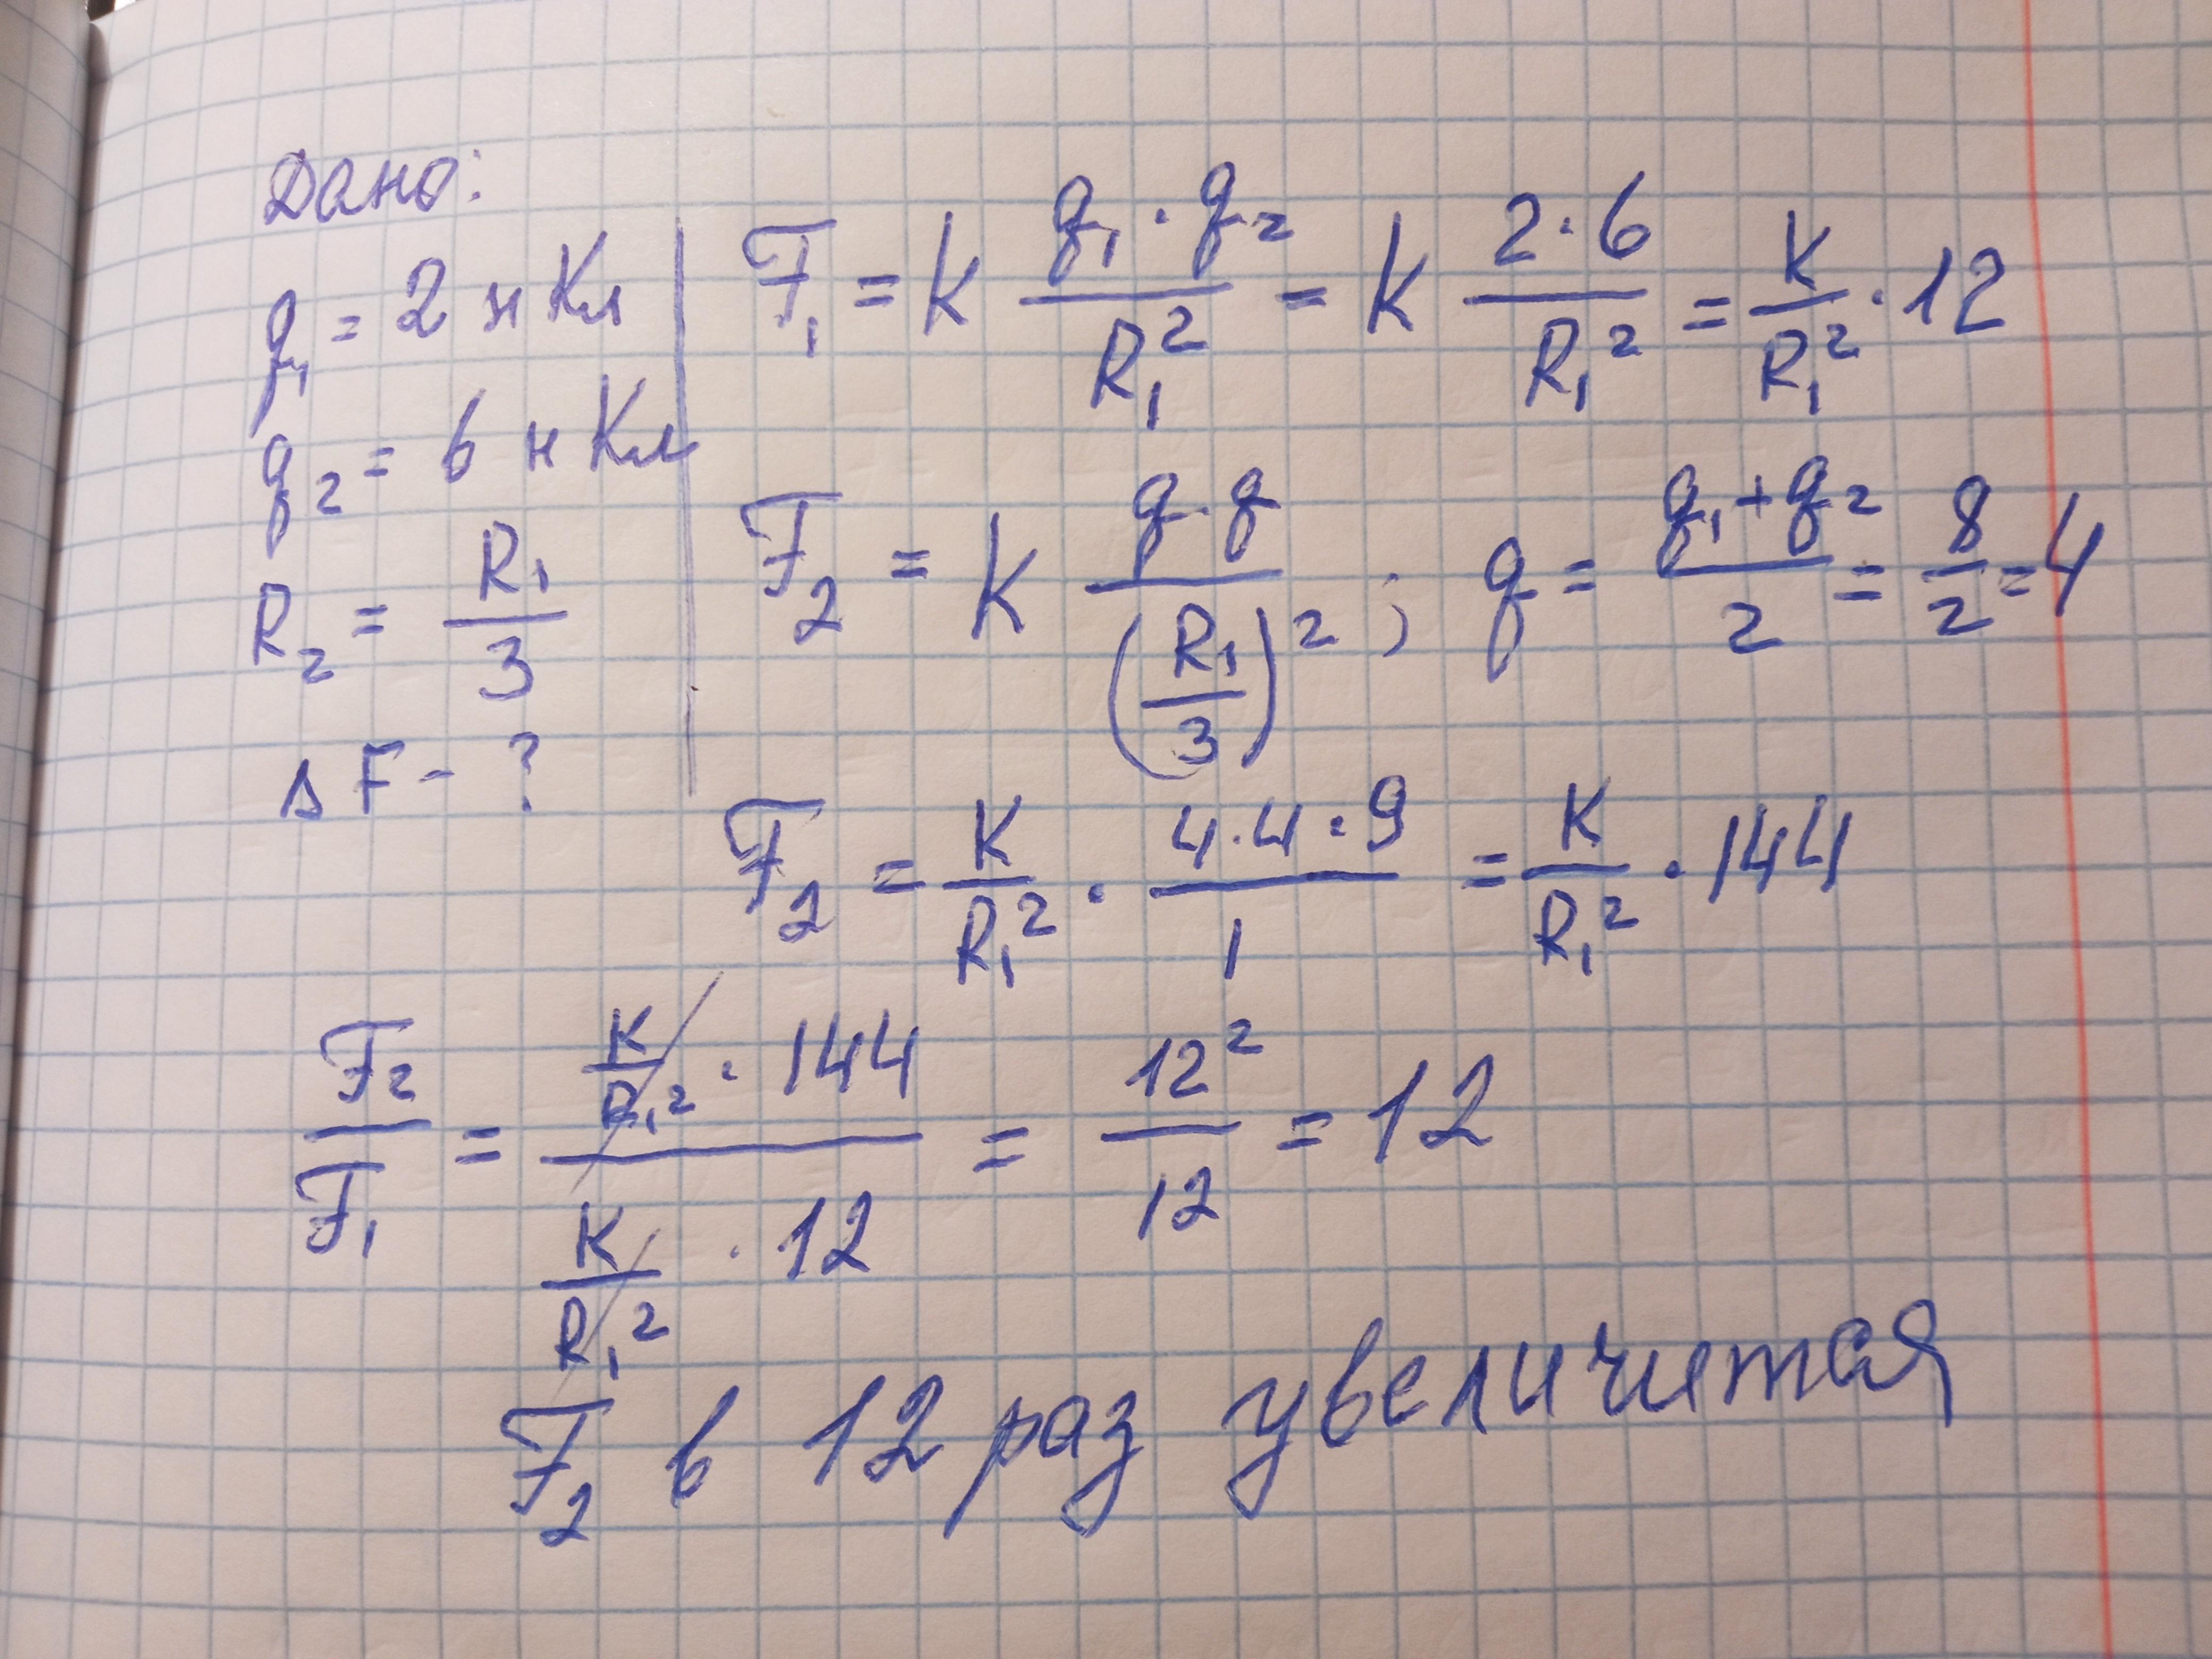 Дано:
q₁ = 2 нКл
q₂ = 6 нКл
R₂ = R₁/3
ΔF - ?
F₁ = K (q₁ · q₂)/R₁² = K (2 · 6)/R₁² = K/R₁² · 12
F₂ = K (q · q)/(R₁/3)² ; q = (q₁ + q₂)/2 = 8/2 = 4
F₂ = K/R₁² · (4 · 4 · 9)/1 = K/R₁² · 144
F₂/F₁ = (K/R₁² · 144)/(K/R₁² · 12) = 12²/12 = 12
F₂ в 12 раз увеличится